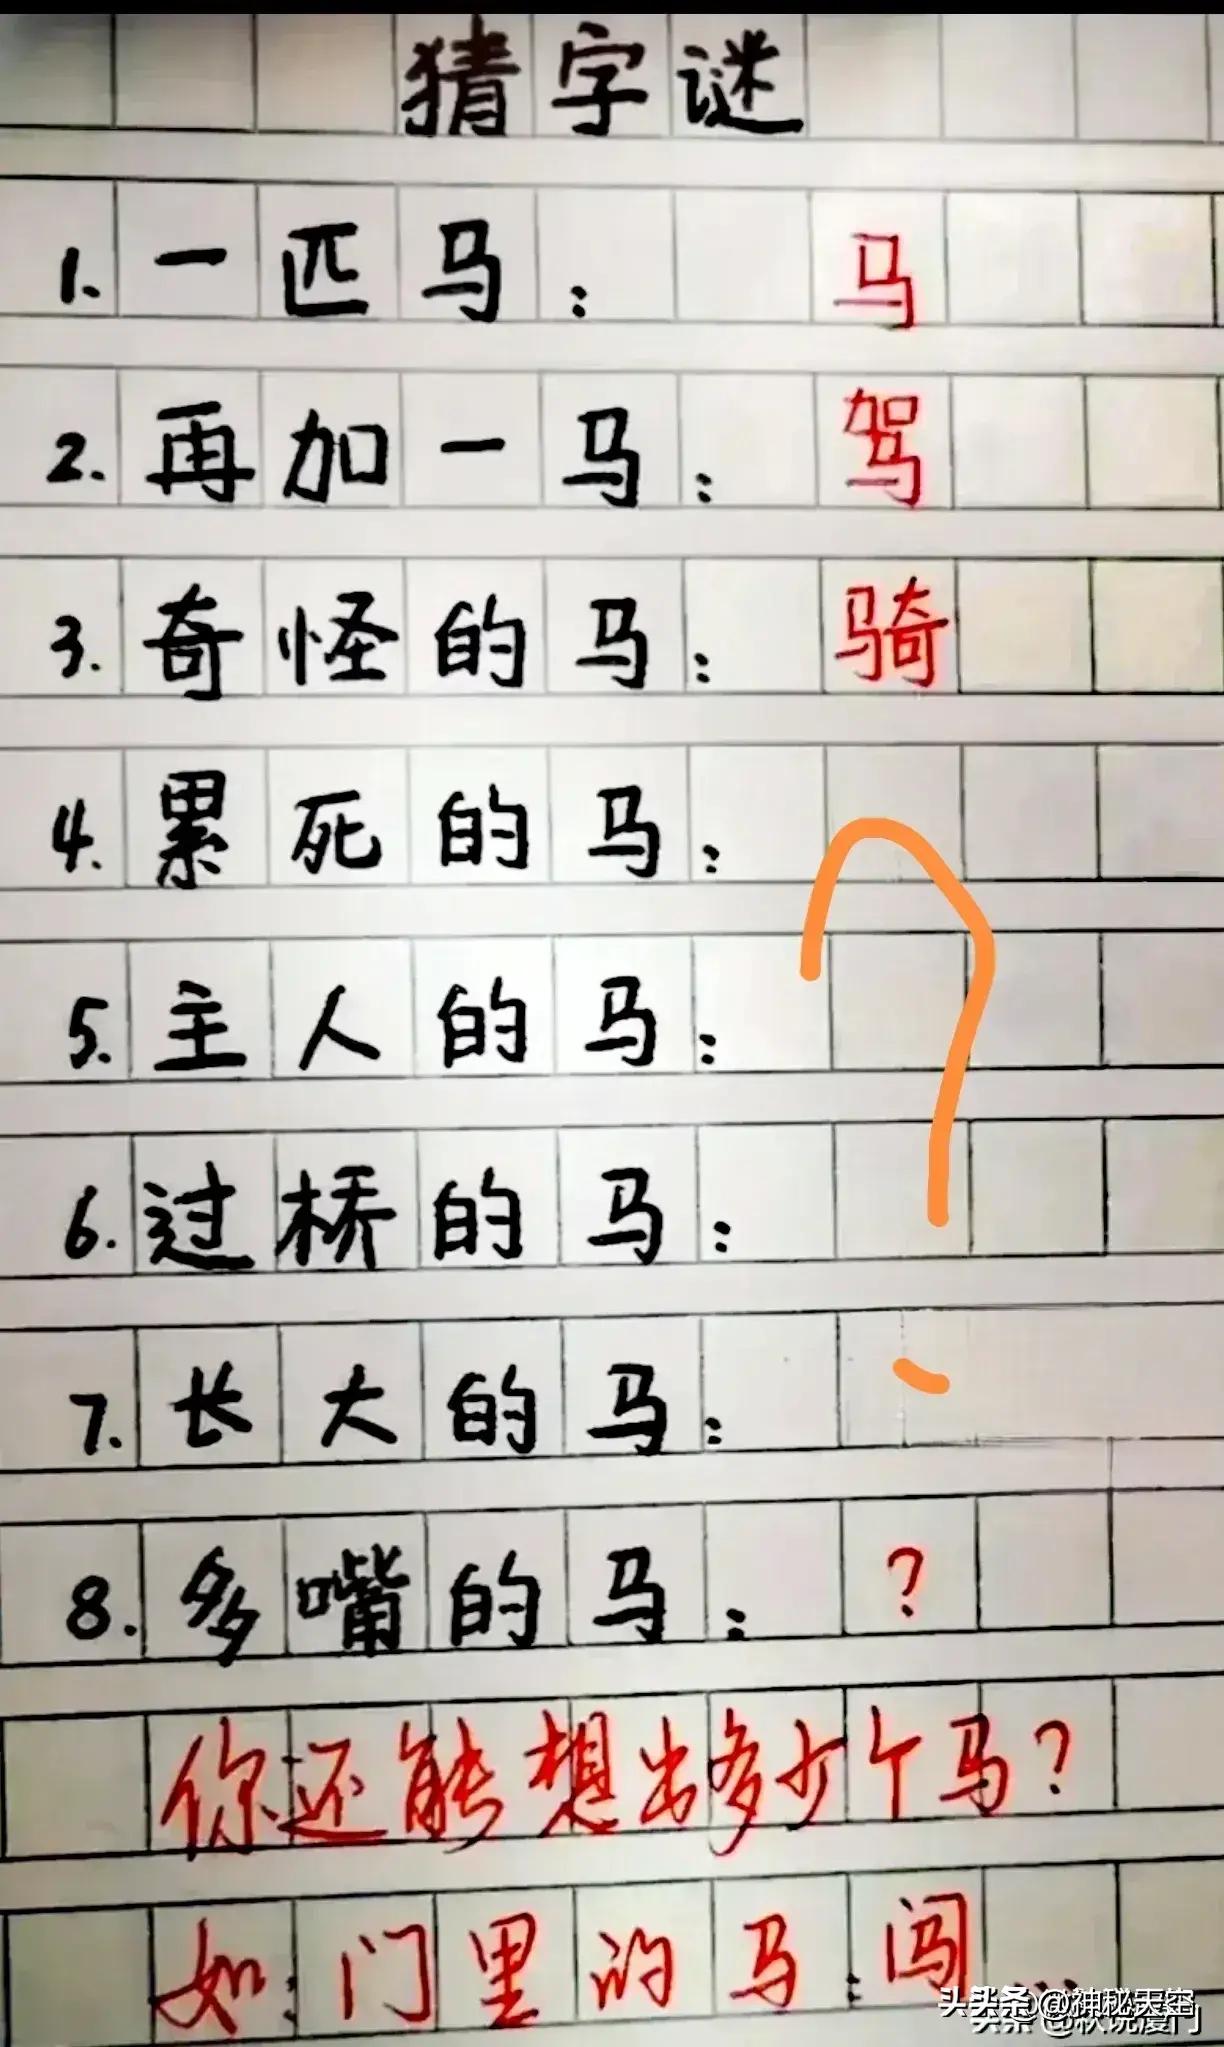 猜字谜
1. 一匹马： 马
2. 再加一马： 驾
3. 奇怪的马： 骑
4. 累死的马：
5. 主人的马：
6. 过桥的马：
7. 长大的马：
8. 多嘴的马： ?
你还能想出多少个马?
如：门里的马：闯...
头条@神秘天空
头条@秋说厦门